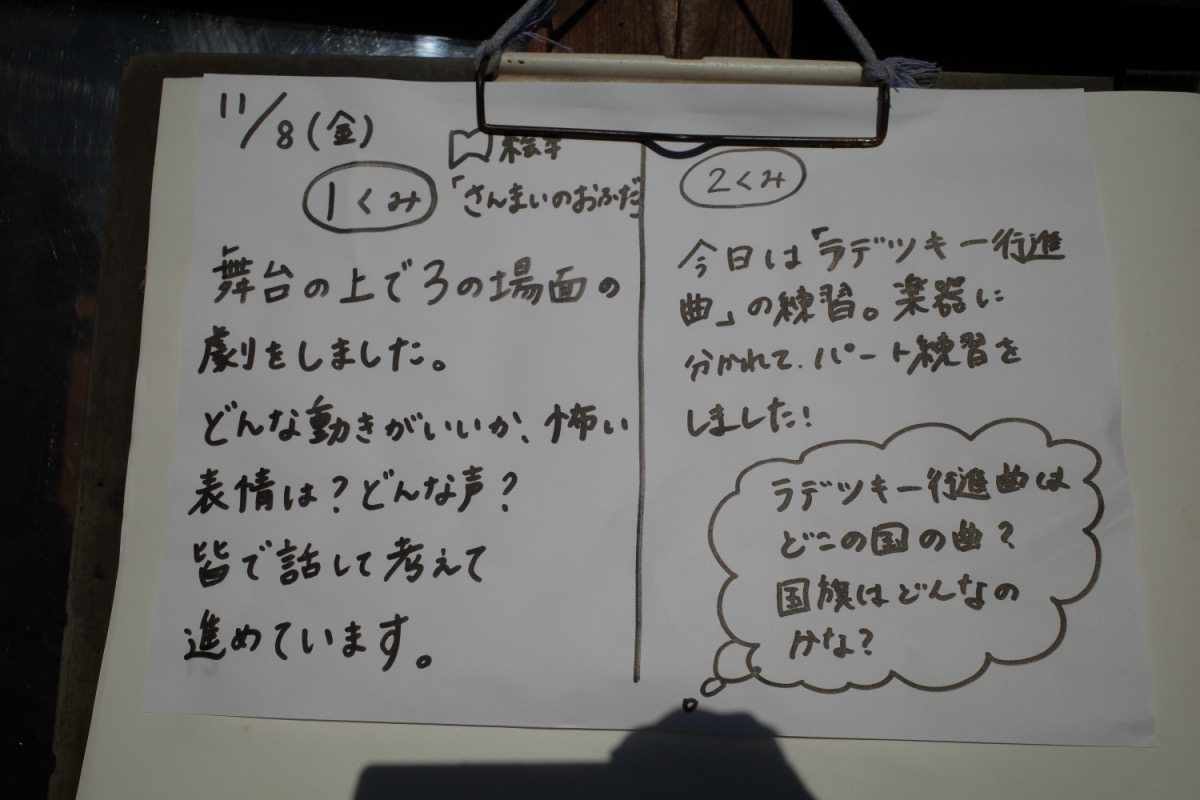 11/8(金)
1くみ
「さんまいのおふだ」
舞台の上で3の場面の
劇をしました。
どんな動きがいいか、怖い
表情は?どんな声?
皆で話して考えて
進めています。
2くみ
今日は「ラデツキー行進
曲」の練習。楽器に
分かれて、パート練習を
しました!
ラデツキー行進曲は
どこの国の曲?
国旗はどんなの
かな?